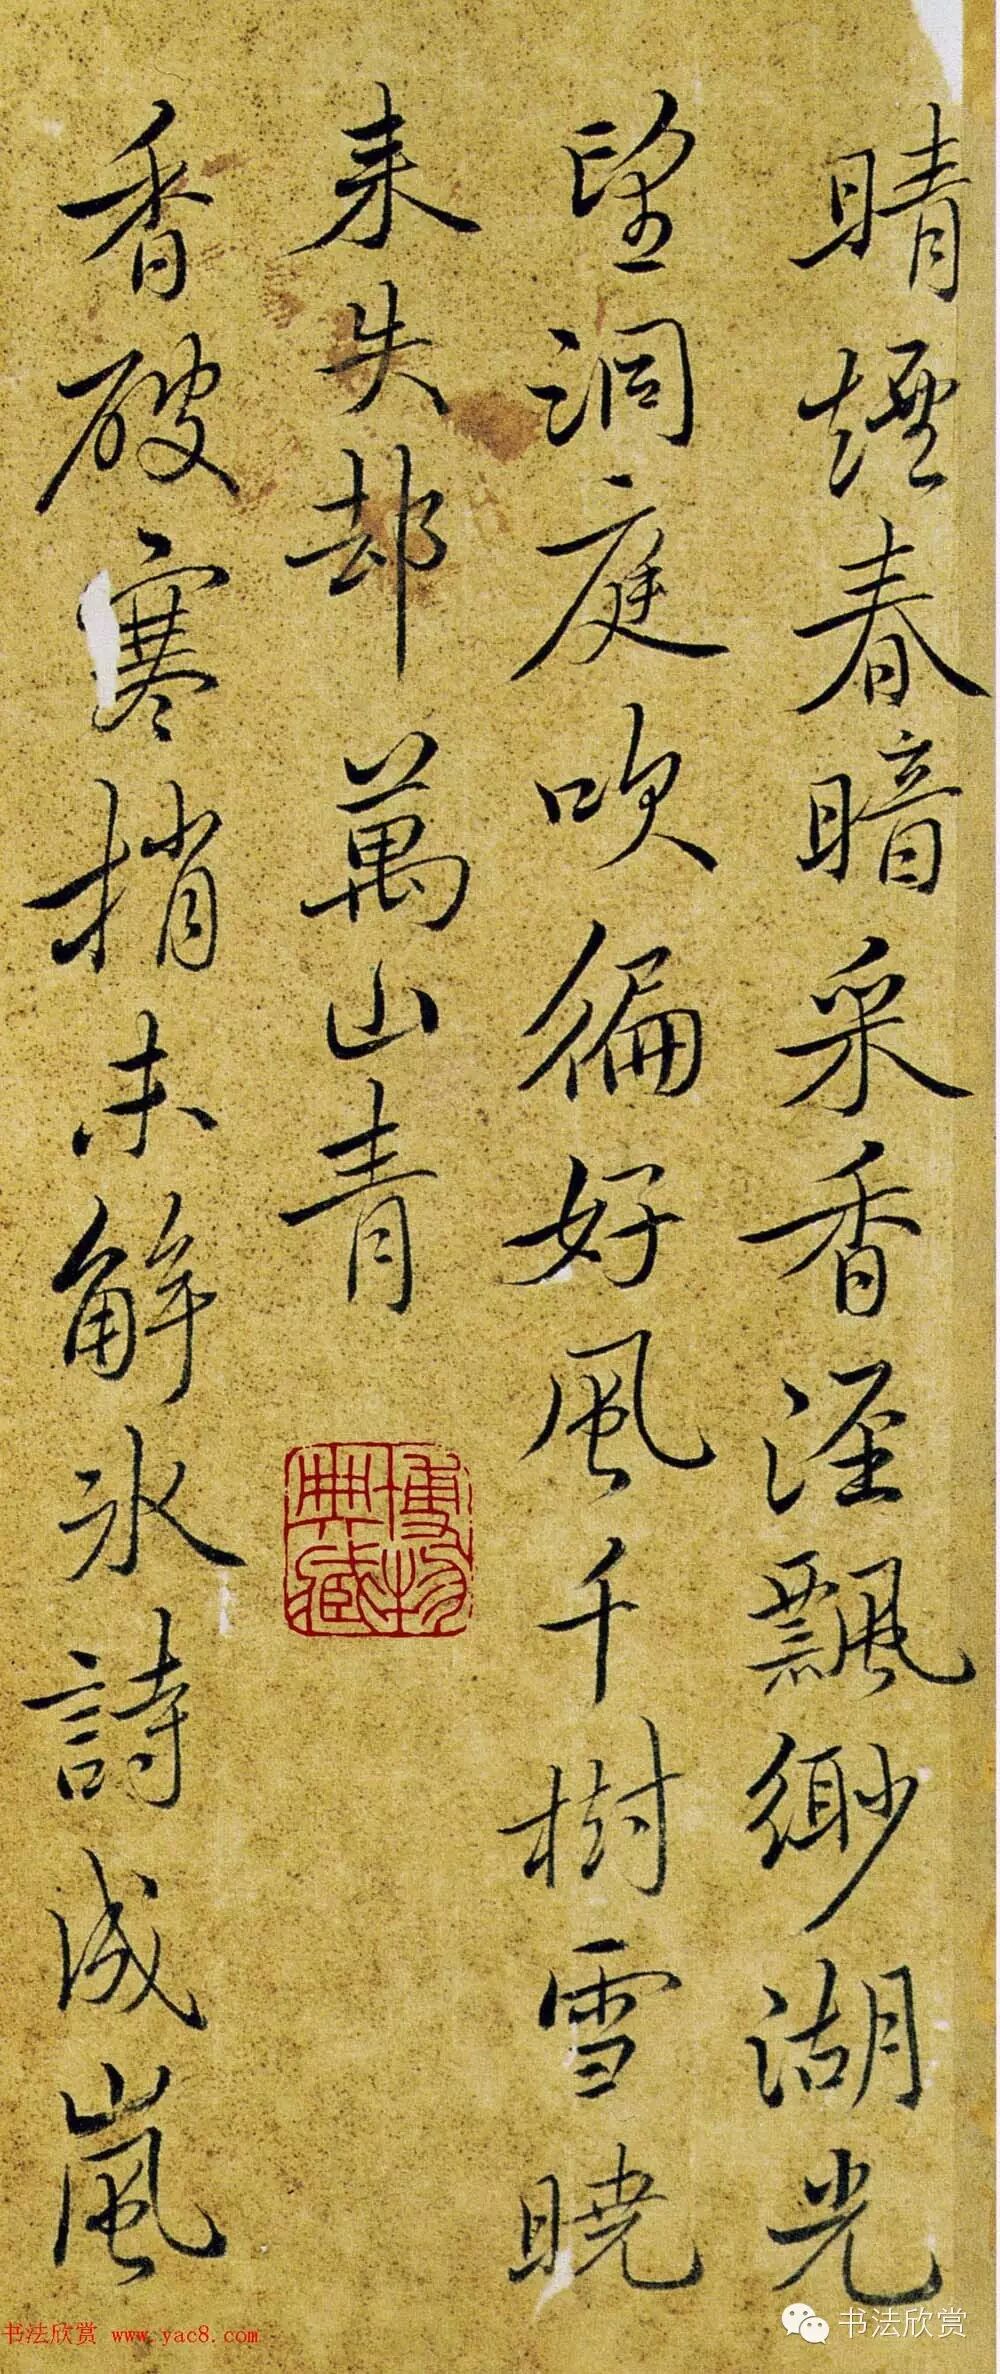 晴煙春暗采香涇飄緲湖光
望洞庭吹徧好風千樹雪曉
来失却萬山青
香破寒梢未解氷詩成嵐
博物
典藏
书法欣赏 www.yac8.com
书法欣赏